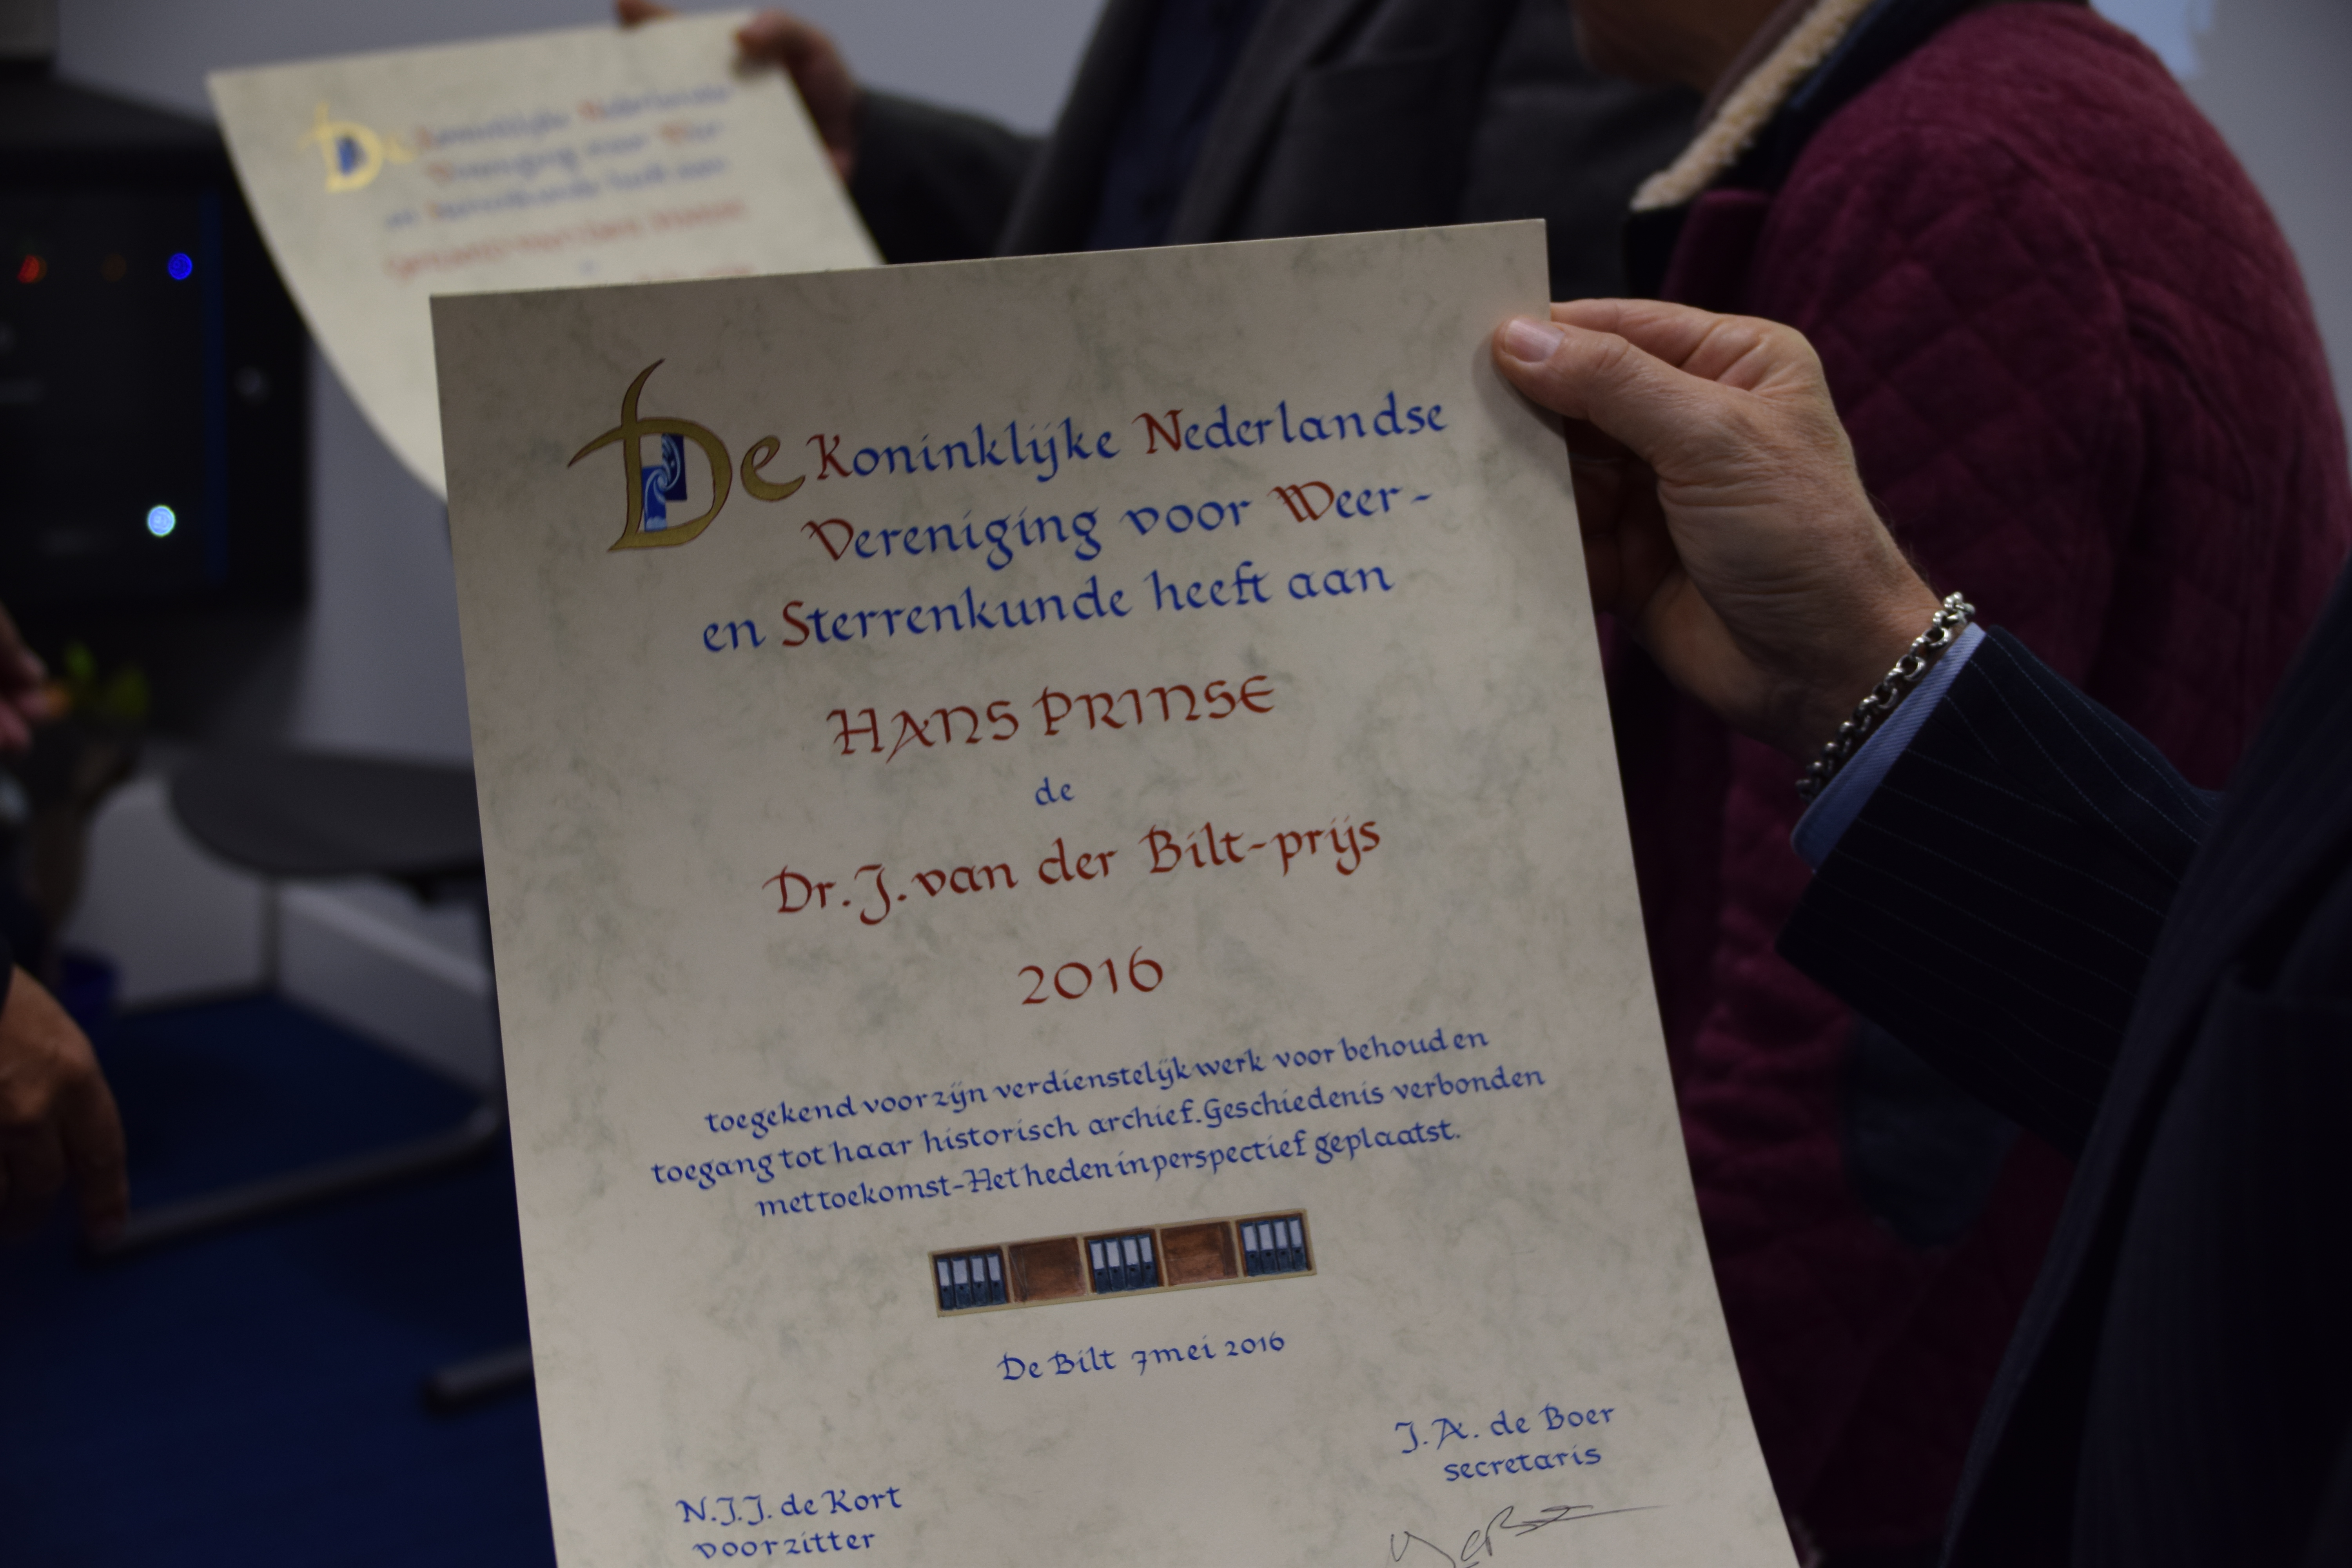 De Koninklijke Nederlandse
Vereniging voor Weer-
en Sterrenkunde heeft aan
HANS PRINSE
de
Dr. J. van der Bilt-prijs
2016
toegekend voor zijn verdienstelijk werk voor behoud en
toegang tot haar historisch archief. Geschiedenis verbonden
met toekomst-Het heden in perspectief geplaatst.
De Bilt 7 mei 2016
J. A. de Boer
secretaris
N.J.J. de Kort
voorzitter
De Koninklijke Nederlandse
Vereniging voor Weer-
en Sterrenkunde heeft aan